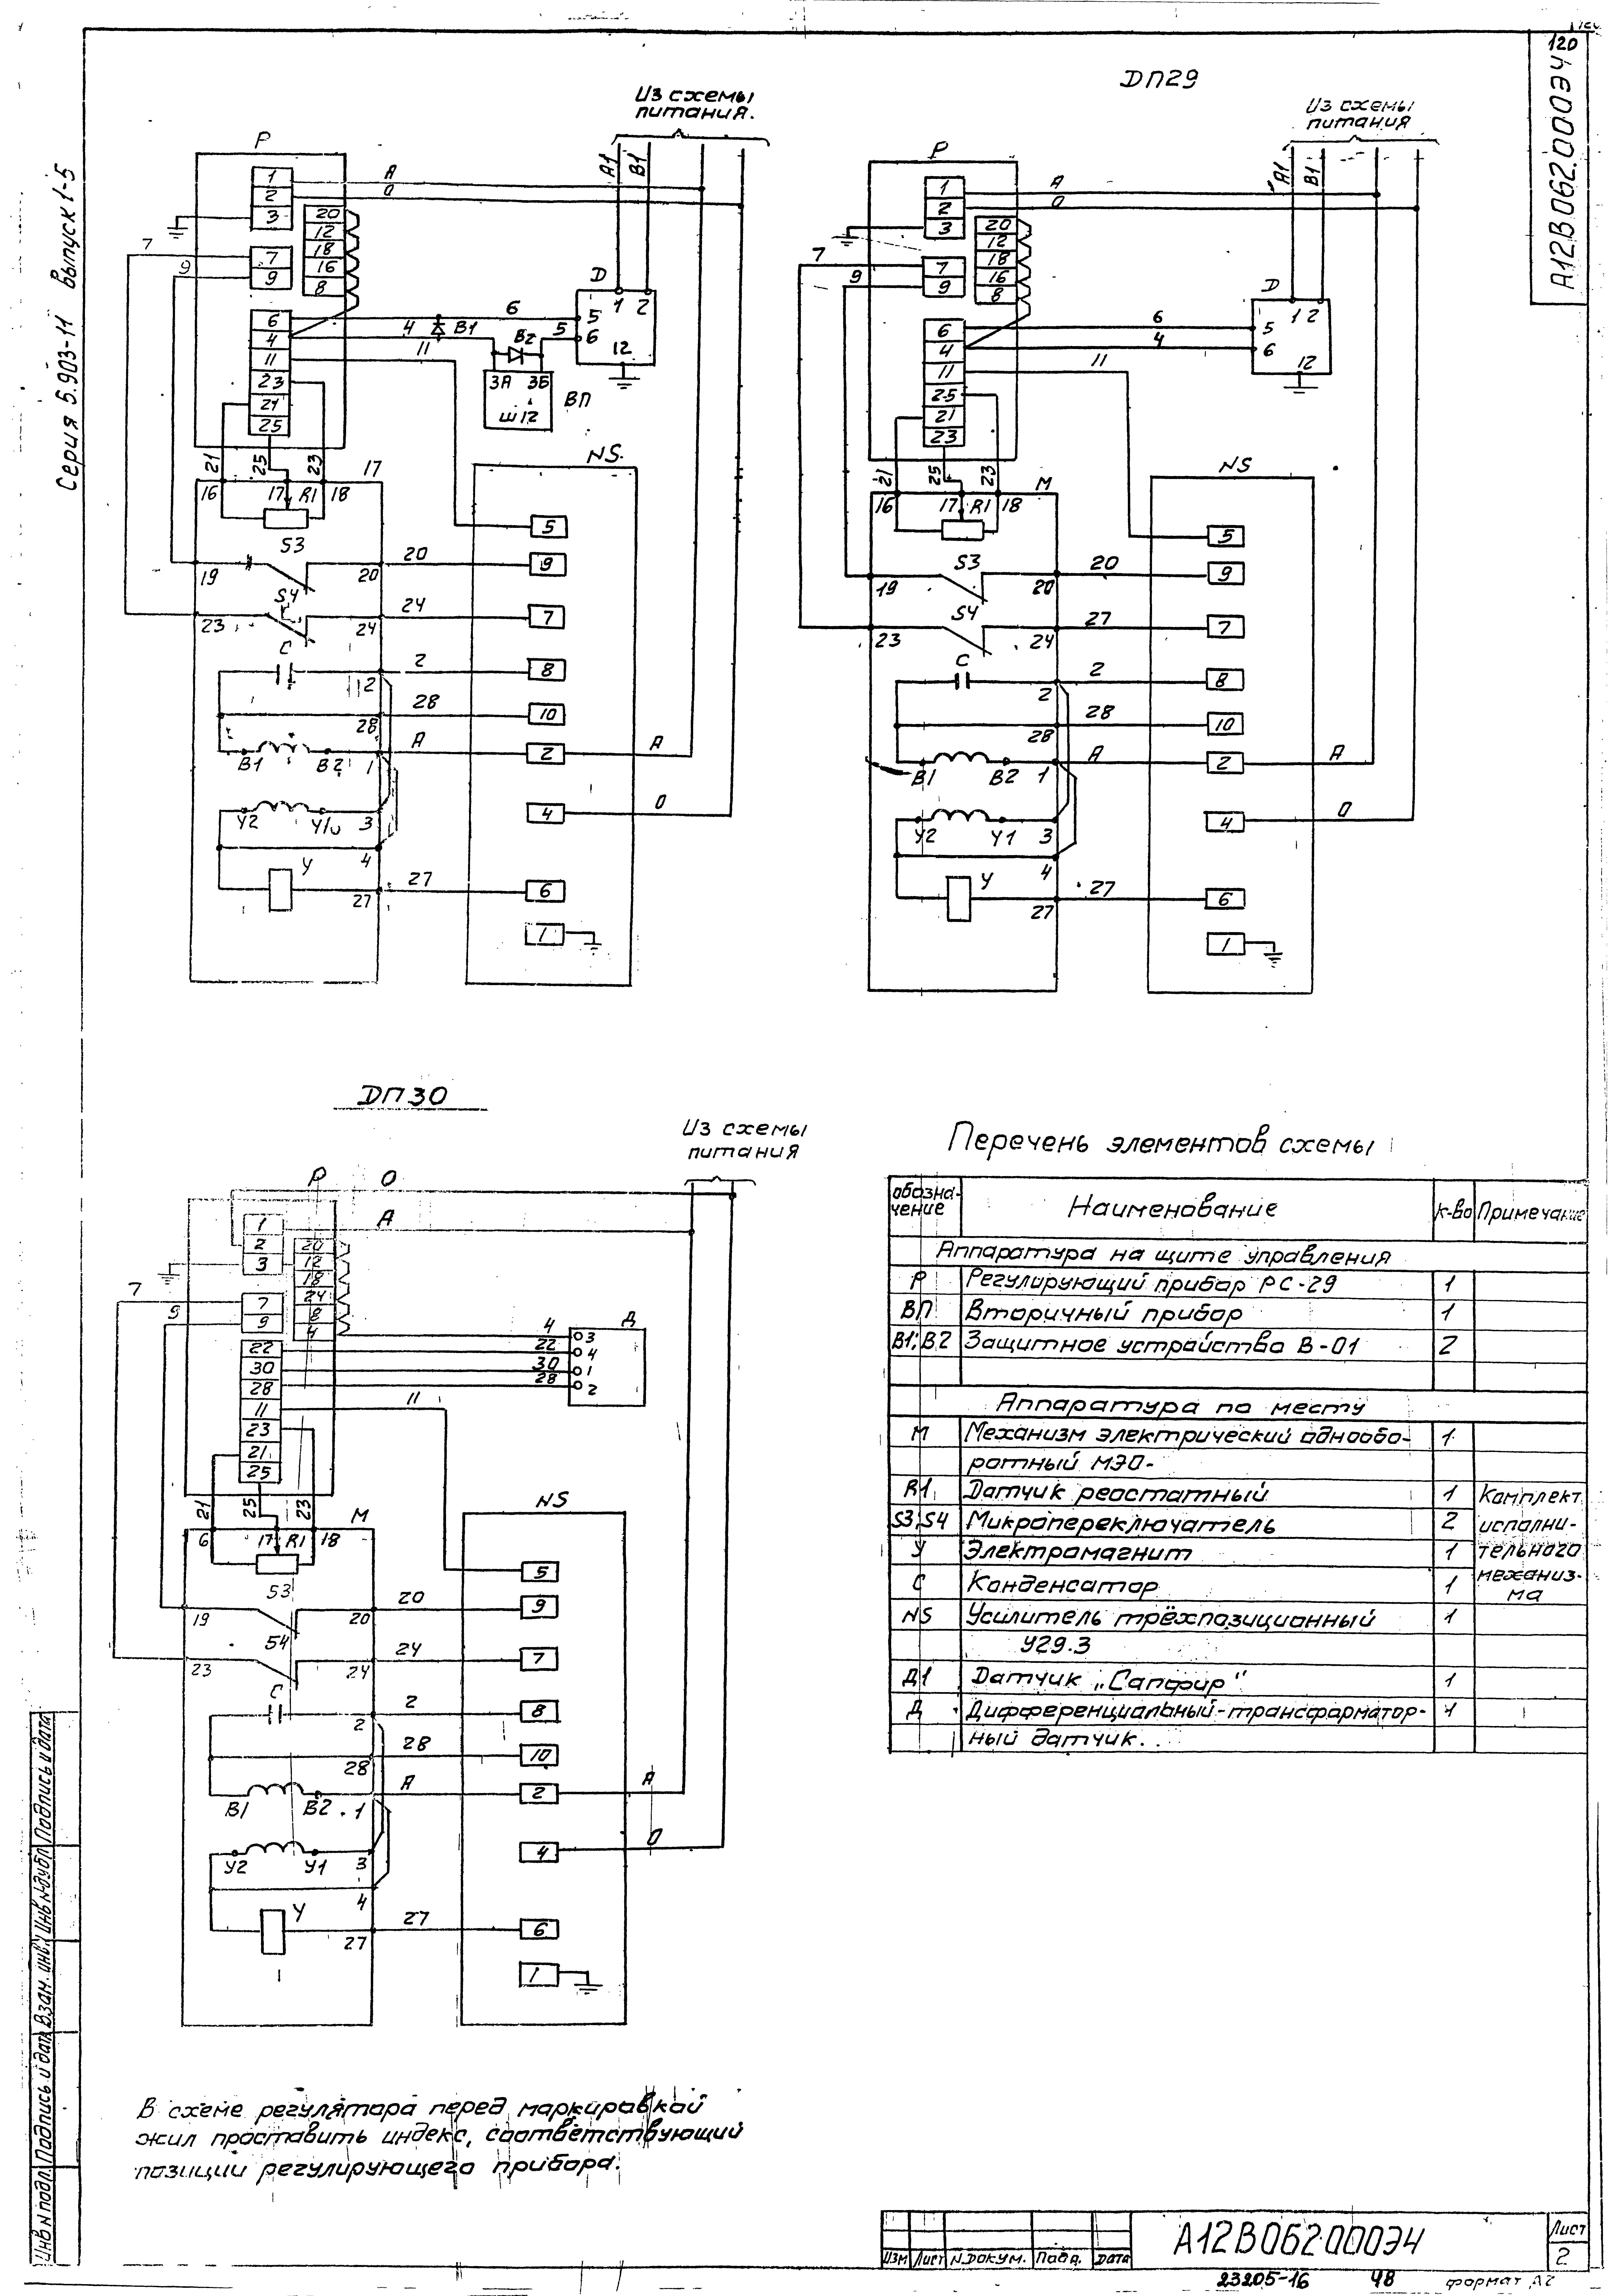 120
А12В062.000Э4
Серия 5.903-11 выпуск 1-5
Из схемы
питания.
А1
В1
Р
1
А
2
0
3
20
12
18
16
8
7
7
9
9
6
6
4
4
В1
11
11
23
21
25
В2
5
3А 3Б
Ш12
ВП
D
1 2
5
6
12
21
25
23
17
16
17
R1
18
NS.
5
S3
19
20
20
9
S4
23
24
24
7
С
2
2
8
28
28
10
В1
В2
1
А
2
А
У2
У1
3
4
0
4
У
27
27
6
1
ДП29
Из схемы
питания
А1
В1
Р
1
А
2
0
3
20
12
18
16
8
7
7
9
9
6
6
4
4
11
11
25
21
23
D
1 2
5
6
12
21
25
23
М
16
17
R1
18
NS
5
S3
19
20
20
9
S4
23
24
27
7
С
2
2
8
28
28
10
В1
В2
1
А
2
А
У2
У1
3
4
0
4
У
27
27
6
1
ДП30
Из схемы
питания
Р
0
1
А
2
3
20
12
18
24
8
4
7
7
9
22
30
28
11
11
23
21
25
4
22
30
28
Д
3
4
1
2
21
25
23
М
6
17
R1
18
NS
5
S3
19
20
20
9
S4
23
24
24
7
С
2
2
8
28
28
10
В1
В2
1
А
2
А
У2
У1
3
4
0
4
У
27
27
6
1
Перечень элементов схемы
обозна-
чение
Наименование
к-во
Примечание
Аппаратура на щите управления
Р Регулирующий прибор РС-29 1
ВП Вторичный прибор 1
В1; В2 Защитное устройство В-01 2
Аппаратура по месту
М Механизм электрический однообо- 1
ротный МЭО-
R1 Датчик реостатный 1 Комплект
S3; S4 Микропереключатель 2 исполни-
У Электромагнит 1 тельного
С Конденсатор 1 механиз-
ма
NS Усилитель трёхпозиционный 1
У29.3
Д1 Датчик „Сапфир" 1
Д Дифференциальный-трансформатор- 1
ный датчик.
В схеме регулятора перед маркировкой
жил проставить индекс, соответствующий
позиции регулирующего прибора.
Инв N подл. Подпись и дата Взам. инв. Инв N дубл Подпись и дата
Изм Лист N.докум. Подп. Дата
А12В062000Э4
Лист
2
23205-16 48 формат А2